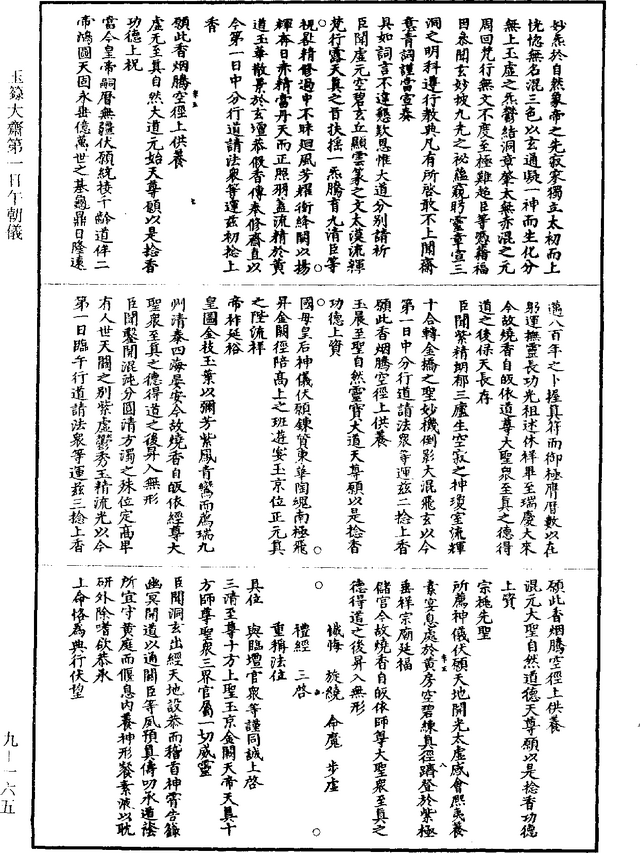 妙炁於自然象帝之先寂寥獨立太初而上
恍惚無名混三色以玄通凝一神而生化分
無上玉虛之炁鬱結洞章榮太無赤混之元
周回梵行無文不度至極難超臣等憑藉福
因參聞玄妙披九光之祕蘊窺眄靈章宣三
洞之明科遵行教典凡有所啓敢不上聞齋
意青詞謹當宣奏
具如詞言不違懇欵恩惟大道分別請祈
臣聞虛元空碧玄丘顯雲篆之文太漠流輝
梵行露天真之首扶搖一炁騰育九清臣等
祝晷精修過中不昧迴風芳耀衝絳闕以揚
輝奔日赤精當丹天而正照羽蓋流精於黃
道玉華散景於玄壇恭假香傳奉修齋直以
今第一日中分行道請法衆等運茲初捻上
香
願此香烟騰空徑上供養
虛元至真自然大道元始天尊願以是捻香
功德上祝
當今皇帝嗣曆無疆伏願統接千齡道侔二
帝鴻圖天固永垂億萬世之基龜鼎日隆遠
邁八百年之卜握真符而御極膺曆數以在
躬運撫靈長功光祖述休祥畢至瑞慶大來
今故燒香自皈依道尊大聖衆至真之德得
道之後保天長存
臣聞紫精納郁三盧生空寂之神瓊室流輝
十合轉金撟之聖妙機倒影大混飛玄以今
第一日中分行道請法衆等運茲二捻上香
願此香烟騰空徑上供養
玉晨至聖自然靈寶大道天尊願以是捻香
功德上資
國母皇后神儀伏願鍊質東華閱魂南極飛
昇金闕徑陪高上之班遊宴玉京位正元真
之陛流祥
帝祚延裕
皇圖金枝玉葉以彌芳紫風青鸞而薦瑞九
州清泰四海晏安今故燒香自皈依經尊大
聖衆至真之德得道之後昇入無形
臣聞鑿開混沌分圓清方濁之殊位定高卑
有人世天關之別紫虛鬱秀玉精流光以今
第一日臨午行道請法衆等運茲三捻上香
願此香烟騰空徑上供養
混元大聖自然道德天尊願以是捻香功德
上資
宗祧先聖
所薦神儀伏願天地開光太虛感會熙夷養
素宴息處於黃房空碧練真徑躋登於紫極
垂祥宗廟延福
儲宮今故燒香自皈依師尊大聖衆至真之
德得道之後昇入無形
懺悔 旋繞 命魔 步虛
禮經 三啓
重稱法位
具位 與臨壇官衆等謹同誠上啓
三清至尊十方上聖玉京金闕天帝天真十
方師尊聖衆三界官屬一切威靈
臣聞洞玄出經天地設恭而稽首神霄告籙
幽冥開道以通關臣等夙預真傳叨承道蔭
所宜守黃庭而偃息內養神形餐素液以耽
研外除嗜欲恭承
上命恪為典行伏望
玉籙大齋第一日午朝儀
九—一六五